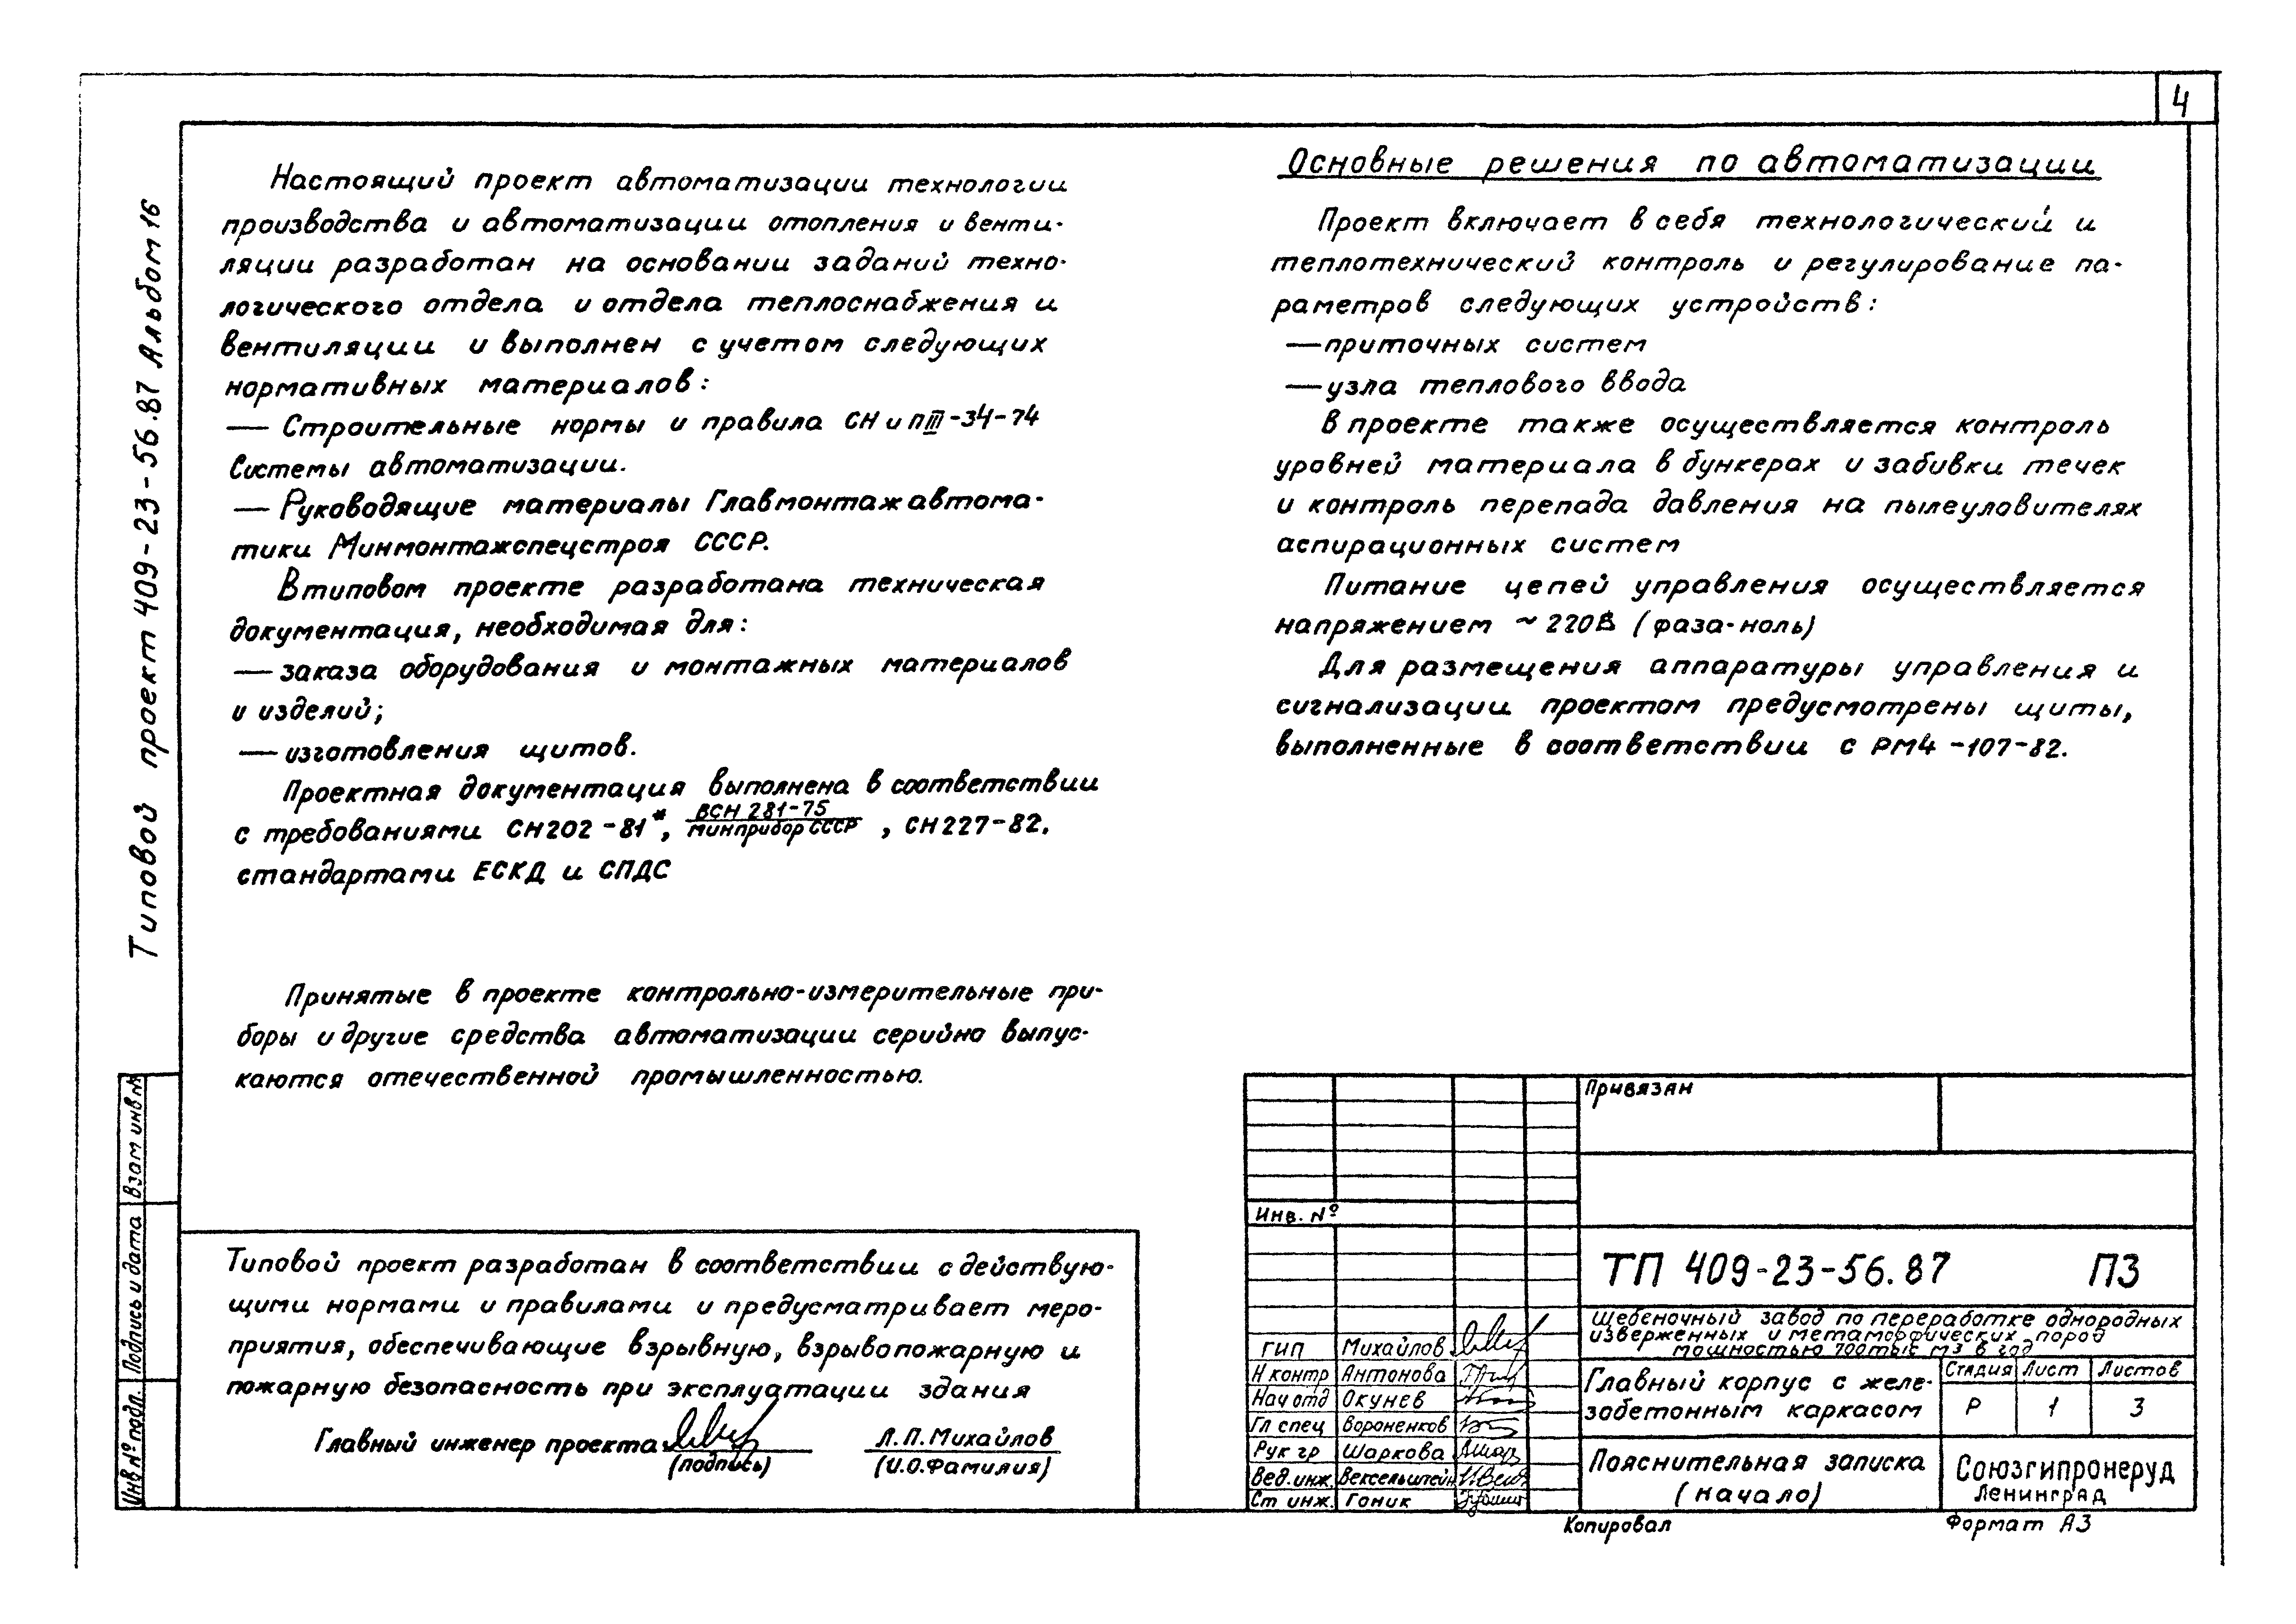 4
Типовой проект 409-23-56.87 Альбом 16
Настоящий проект автоматизации технологии
производства и автоматизации отопления и венти-
ляции разработан на основании заданий техно-
логического отдела и отдела теплоснабжения и
вентиляции и выполнен с учетом следующих
нормативных материалов:
— Строительные нормы и правила СН и П III-34-74
Системы автоматизации.
— Руководящие материалы Главмонтажавтома-
тики Минмонтажспецстроя СССР.
В типовом проекте разработана техническая
документация, необходимая для:
— заказа оборудования и монтажных материалов
и изделий;
— изготовления щитов.
Проектная документация выполнена в соответствии
с требованиями СН202-81*, ВСН 281-75 / Минприбор СССР , СН227-82,
стандартами ЕСКД и СПДС
Принятые в проекте контрольно-измерительные при-
боры и другие средства автоматизации серийно выпус-
каются отечественной промышленностью.
Типовой проект разработан в соответствии с действую-
щими нормами и правилами и предусматривает меро-
приятия, обеспечивающие взрывную, взрывопожарную и
пожарную безопасность при эксплуатации здания
Главный инженер проекта Л.П. Михайлов
(подпись) (И.О.Фамилия)
Основные решения по автоматизации
Проект включает в себя технологический и
теплотехнический контроль и регулирование па-
раметров следующих устройств:
— приточных систем
— узла теплового ввода
В проекте также осуществляется контроль
уровней материала в бункерах и забивки течек
и контроль перепада давления на пылеуловителях
аспирационных систем
Питание цепей управления осуществляется
напряжением ~ 220В (фаза-ноль)
Для размещения аппаратуры управления и
сигнализации проектом предусмотрены щиты,
выполненные в соответствии с РМ4-107-82.
Привязан
Инв. №
ТП 409-23-56.87 ПЗ
Щебеночный завод по переработке однородных
изверженных и метаморфических пород
мощностью 700тыс м3 в год
ГИП Михайлов
Н контр Антонова
Нач отд Окунев
Гл спец Вороненков
Рук гр Шаркова
Вед. инж. Вексельштейн
Ст инж. Гоник
Главный корпус с желе-
зобетонным каркасом
Стадия Лист Листов
Р 1 3
Пояснительная записка
(начало)
Союзгипронеруд
Ленинград
Копировал Формат А3
Взам инв №
Подпись и дата
Инв № подл.